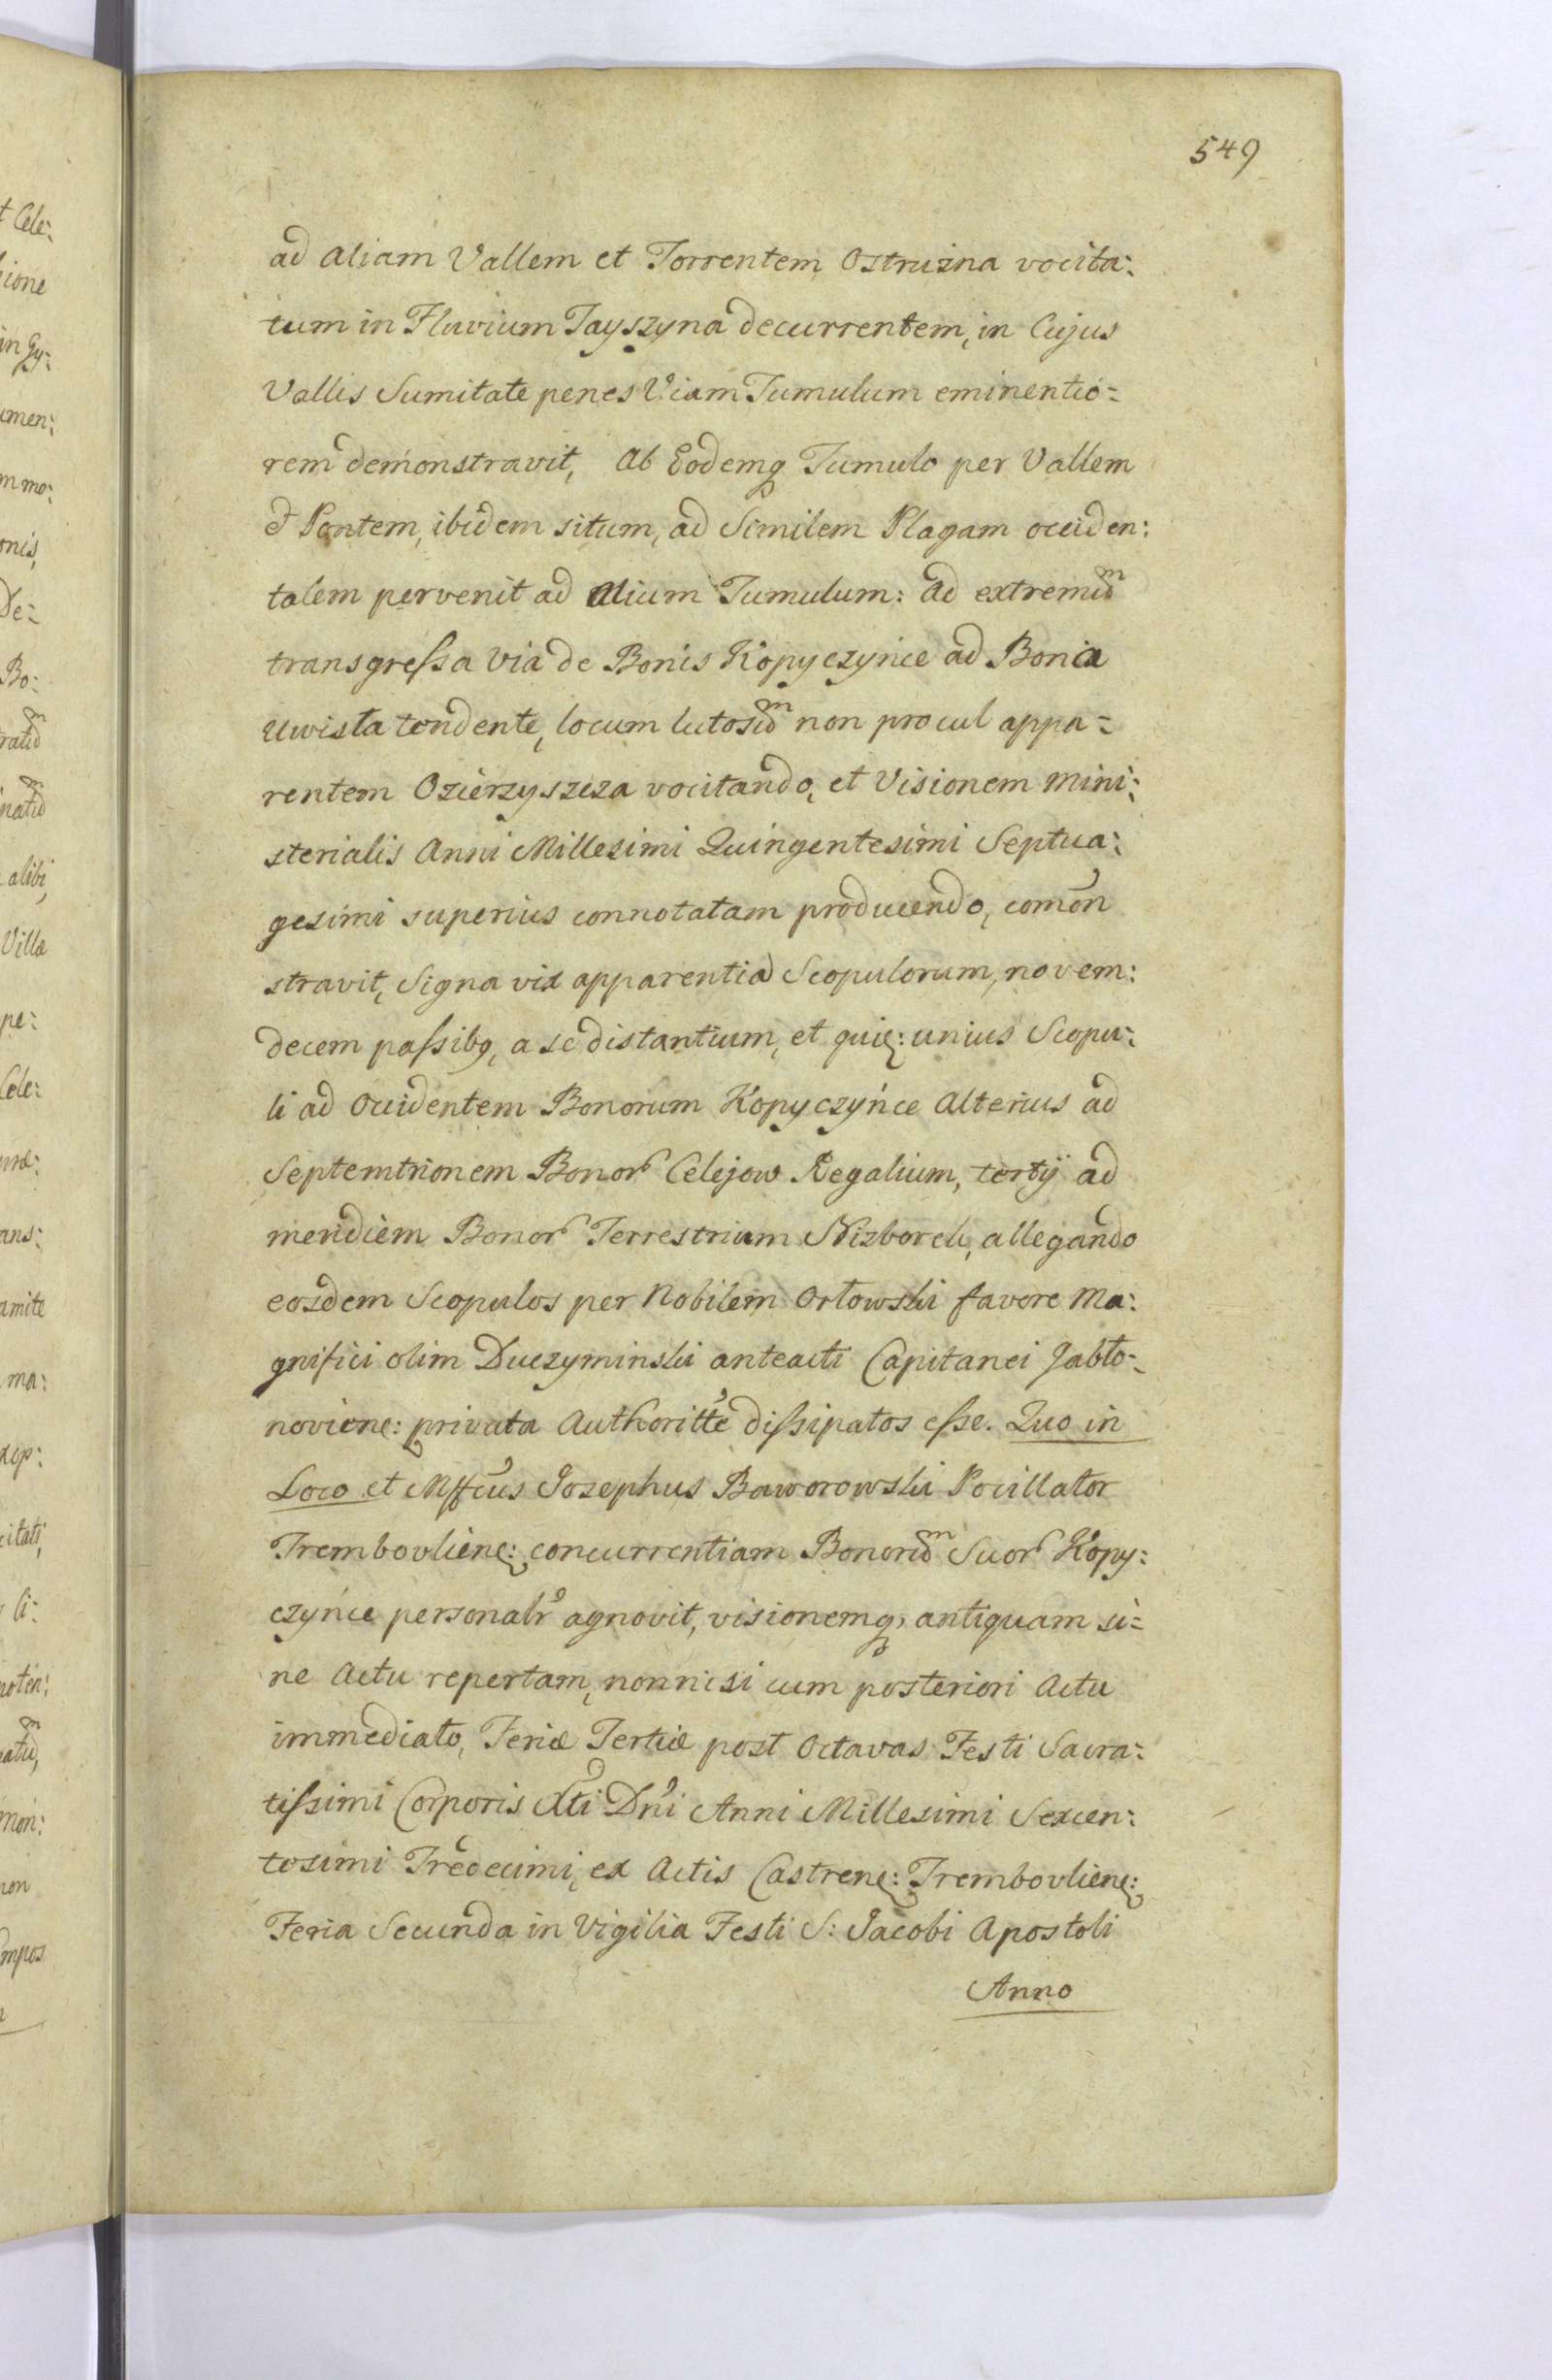 549
ad aliam Vallem et Torrentem Ostružna vocita:
tum in Fluvium Tayszyna decurrentem, in Cujus
Vallis Sumitate penes Viam Tumulum eminentio=
rem demonstravit, ab Eodemq Tumulo per Vallem
& Pontem, ibidem situm, ad Similem Plagam occiden:
talem pervenit ad Alium Tumulum: Ad extremum
transgreſsa via de Bonis Kopyczyńce ad Bonia
Uwisła tendente, locum lutosum non procul appa=
rentem Ozierzyszcza vocitando, et Visionem Mini:
sterialis Anni Millesimi Quingentesimi Septua:
gesimi superius connotatam producendo, comon
stravit, Signa vix apparentia Scopulorum, novem:
decem paſsibq, a se distantium, et quię: unius Scopu:
li ad Occidentem Bonorum Kopyczyńce Alterius ad
Septemtrionem Bonor Celejow Regalium, tertij ad
meridiem Bonor Terrestrium Nizborek, allegando
eosdem Scopulos per Nobilem Orłowski favore Ma:
gnifici olim Duczyminski anteacti Capitanei Jabło=
noviene: privata Authoritte diſsipatos eſse. Quo in
Loco et Mffcus Josephus Baworowski Pocillator
Trembovlienę: concurrentiam Bonorum Suor Kopy:
czyńce personalr agnovit, visionemq, antiquam si=
ne Actu repertam, nonnisi cum posteriori Actu
immediato, Feriæ Tertiæ post Octavas Festi Sacra:
tiſsimi Corporis Xti Dni Anni Millesimi Sexcen:
tesimi Tredecimi, ex Actis Castrenę: Trembovlienę:
Feria Secunda in Vigilia Festi S: Jacobi Apostoli
Anno